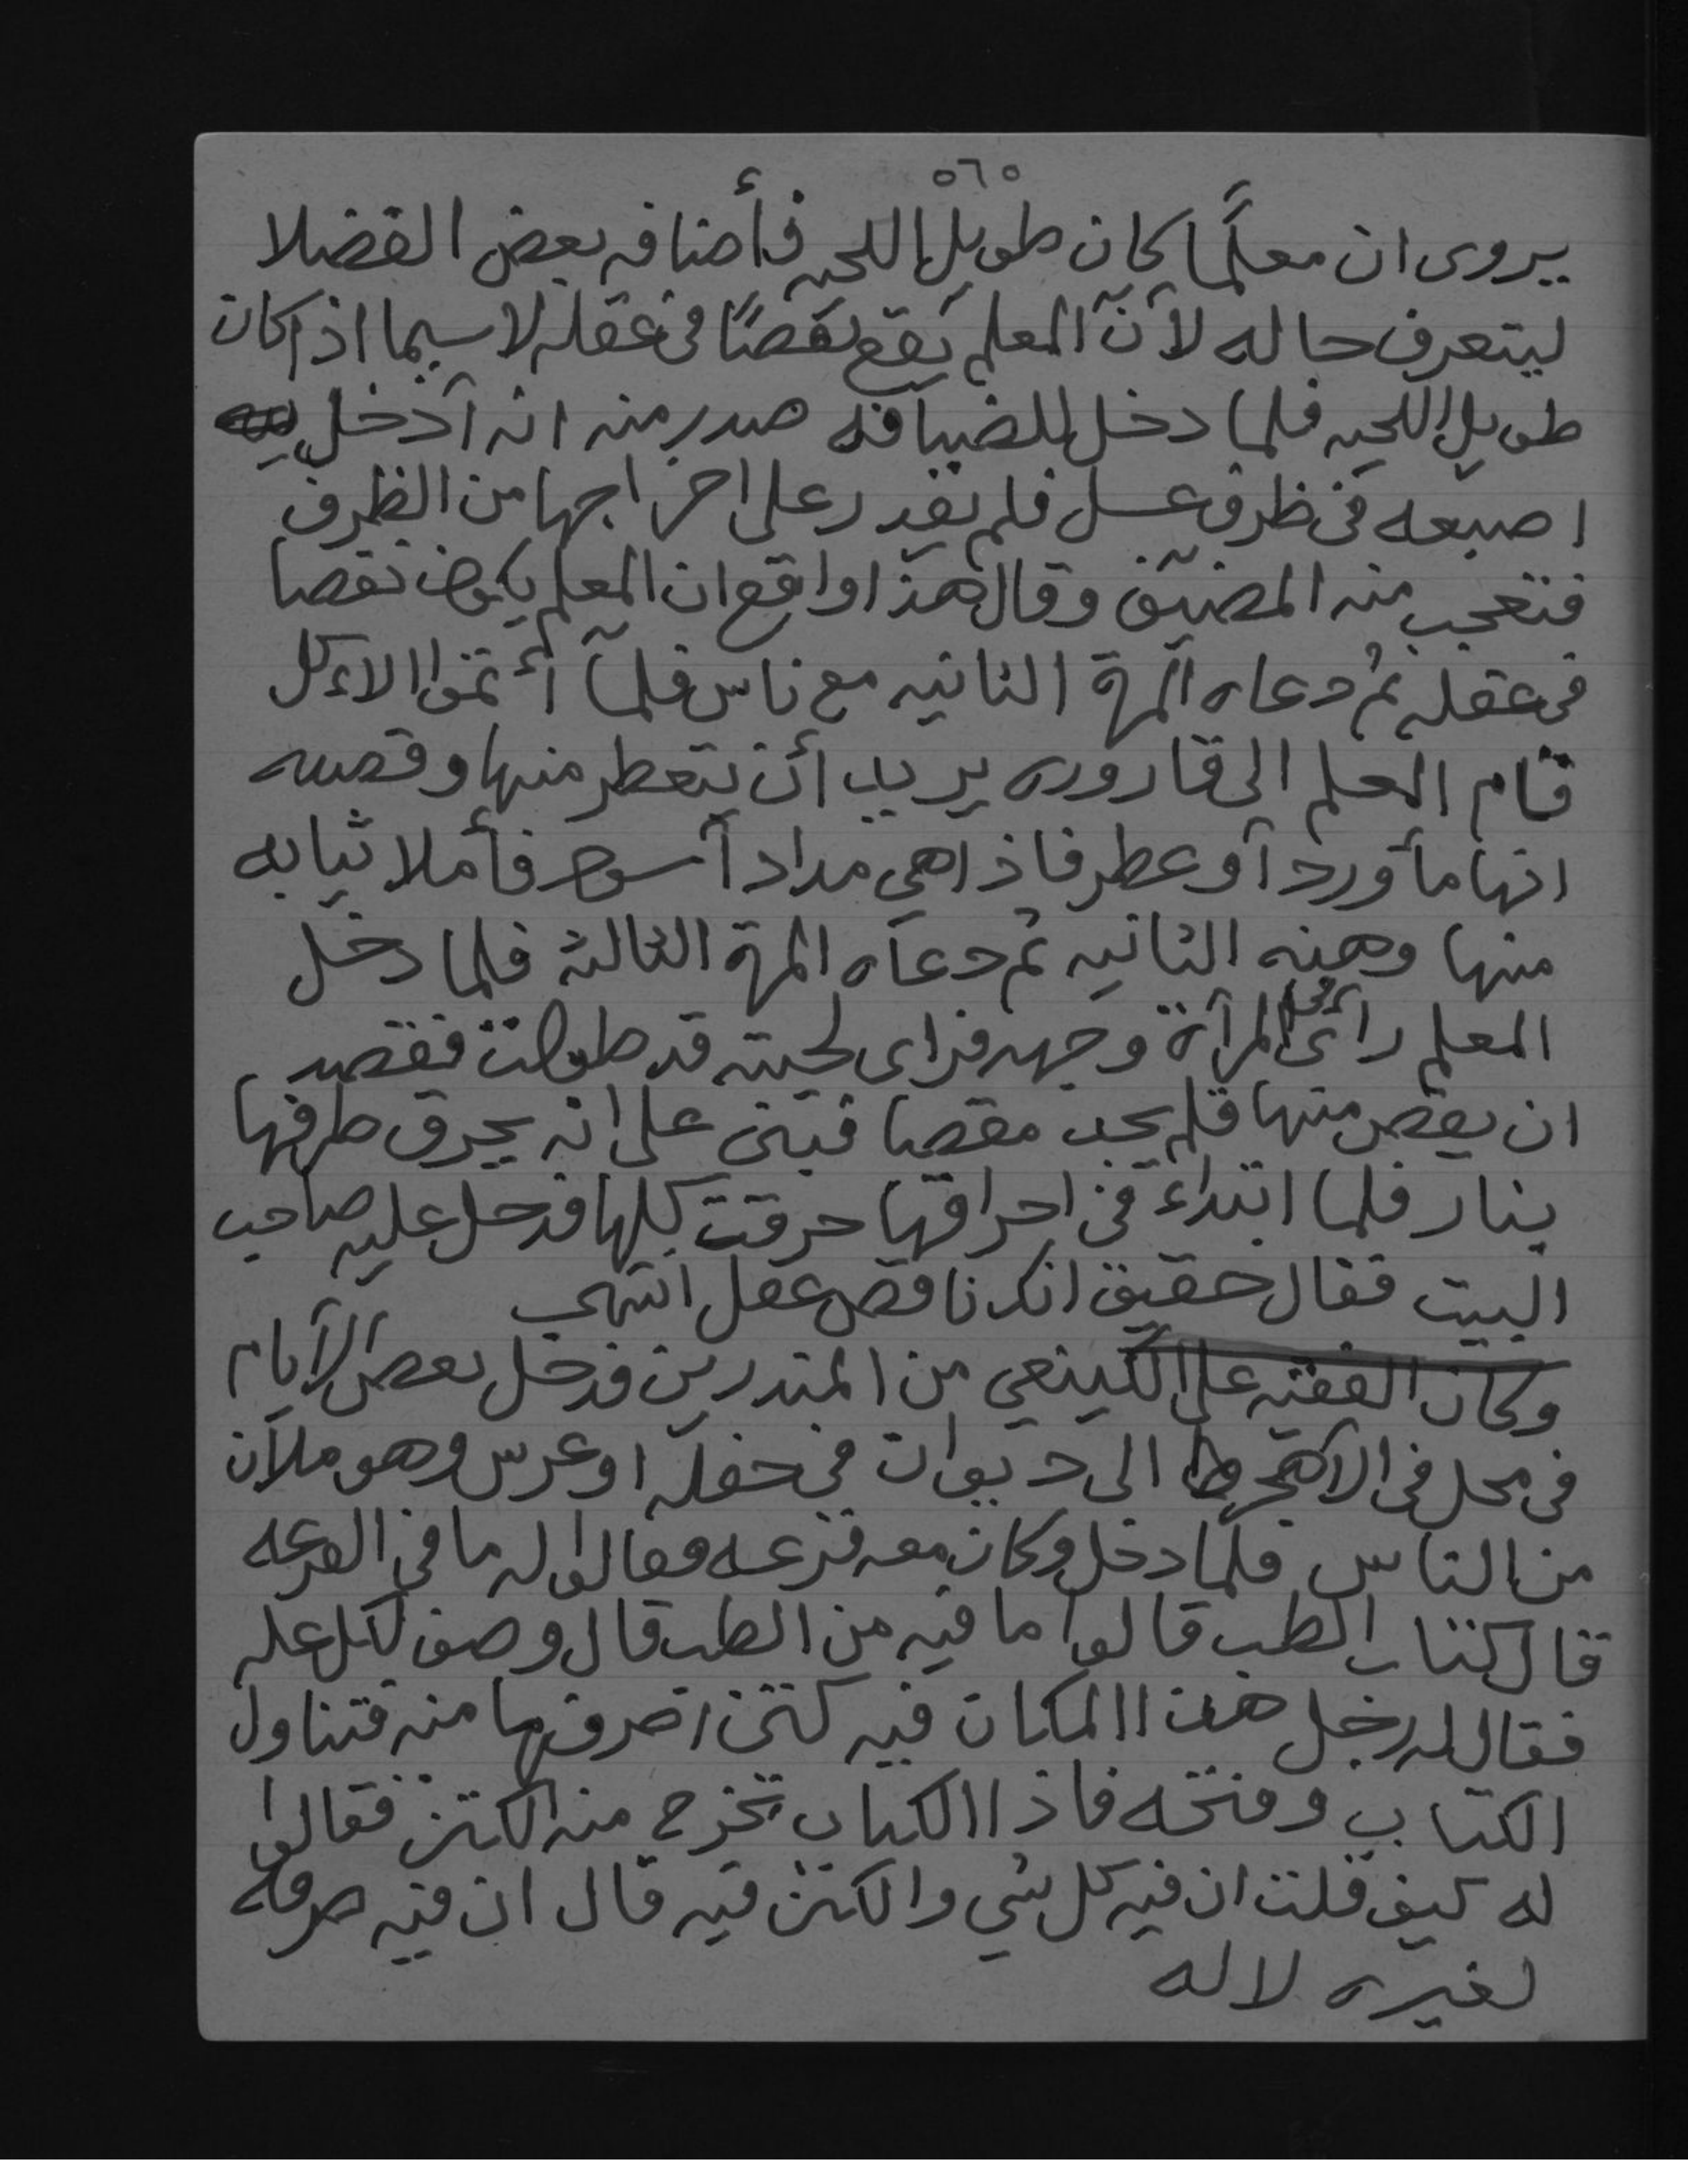 ٥٦٥
يروى ان معلَّما كان طويل اللحيه فأضافه بعض الفضلا
ليتعرف حاله لآن المعلم يقع نقصًا في عقله لا سيما اذا كان
طويل اللحيه فلما دخل للضيافه صدر منه انه آدخل
اصبعه في ظرف عسل فلم يقدر على اخراجها من الظرف
فتعجب منه المضيّف وقال هذا واقع ان المعلم يكون نقصا
في عقله ثم دعاه المرة الثانيه مع ناس فلمآ أتموا الاءكل
قام المعلم الى قاروره يريد أن يتعطر منها وقصده
انها مأورد آو عطر فاذا هي مداد آسود فأملا ثيابه
منها وهذه الثانيه ثم دعاه المرة الثالثه فلما دخل
المعلم رأى في المرآة وجهه فراى لحيته قد طولت فقصد
ان يقص منها فلم يجد مقصا فبنى على انه يحرق طرفها
بنار فلما ابتداء في احراقها حرقت كلها فدخل عليه صاحب
البيت فقال حقيق انك ناقص عقل انتهى
وكان الفقيه علي الكينعي من المتدرين فدخل بعض الآيام
في محل في الاهجر الى ديوان في حفله او عرس وهو ملآن
من الناس فلما دخل وكان معه قزعه فقالوا له ما في القزعه
قال كتاب الطب قالوا ما فيه من الطب قال وصف لكل عله
فقال له رجل هذا المكان فيه كتن اصرفها منه فتناول
الكتاب وفتحه فاذا الكتاب تخرج منه الكتن فقالوا
له كيف قلت ان فيه كل شي والكتن فيه قال ان فيه صرفه
لغيره لا له